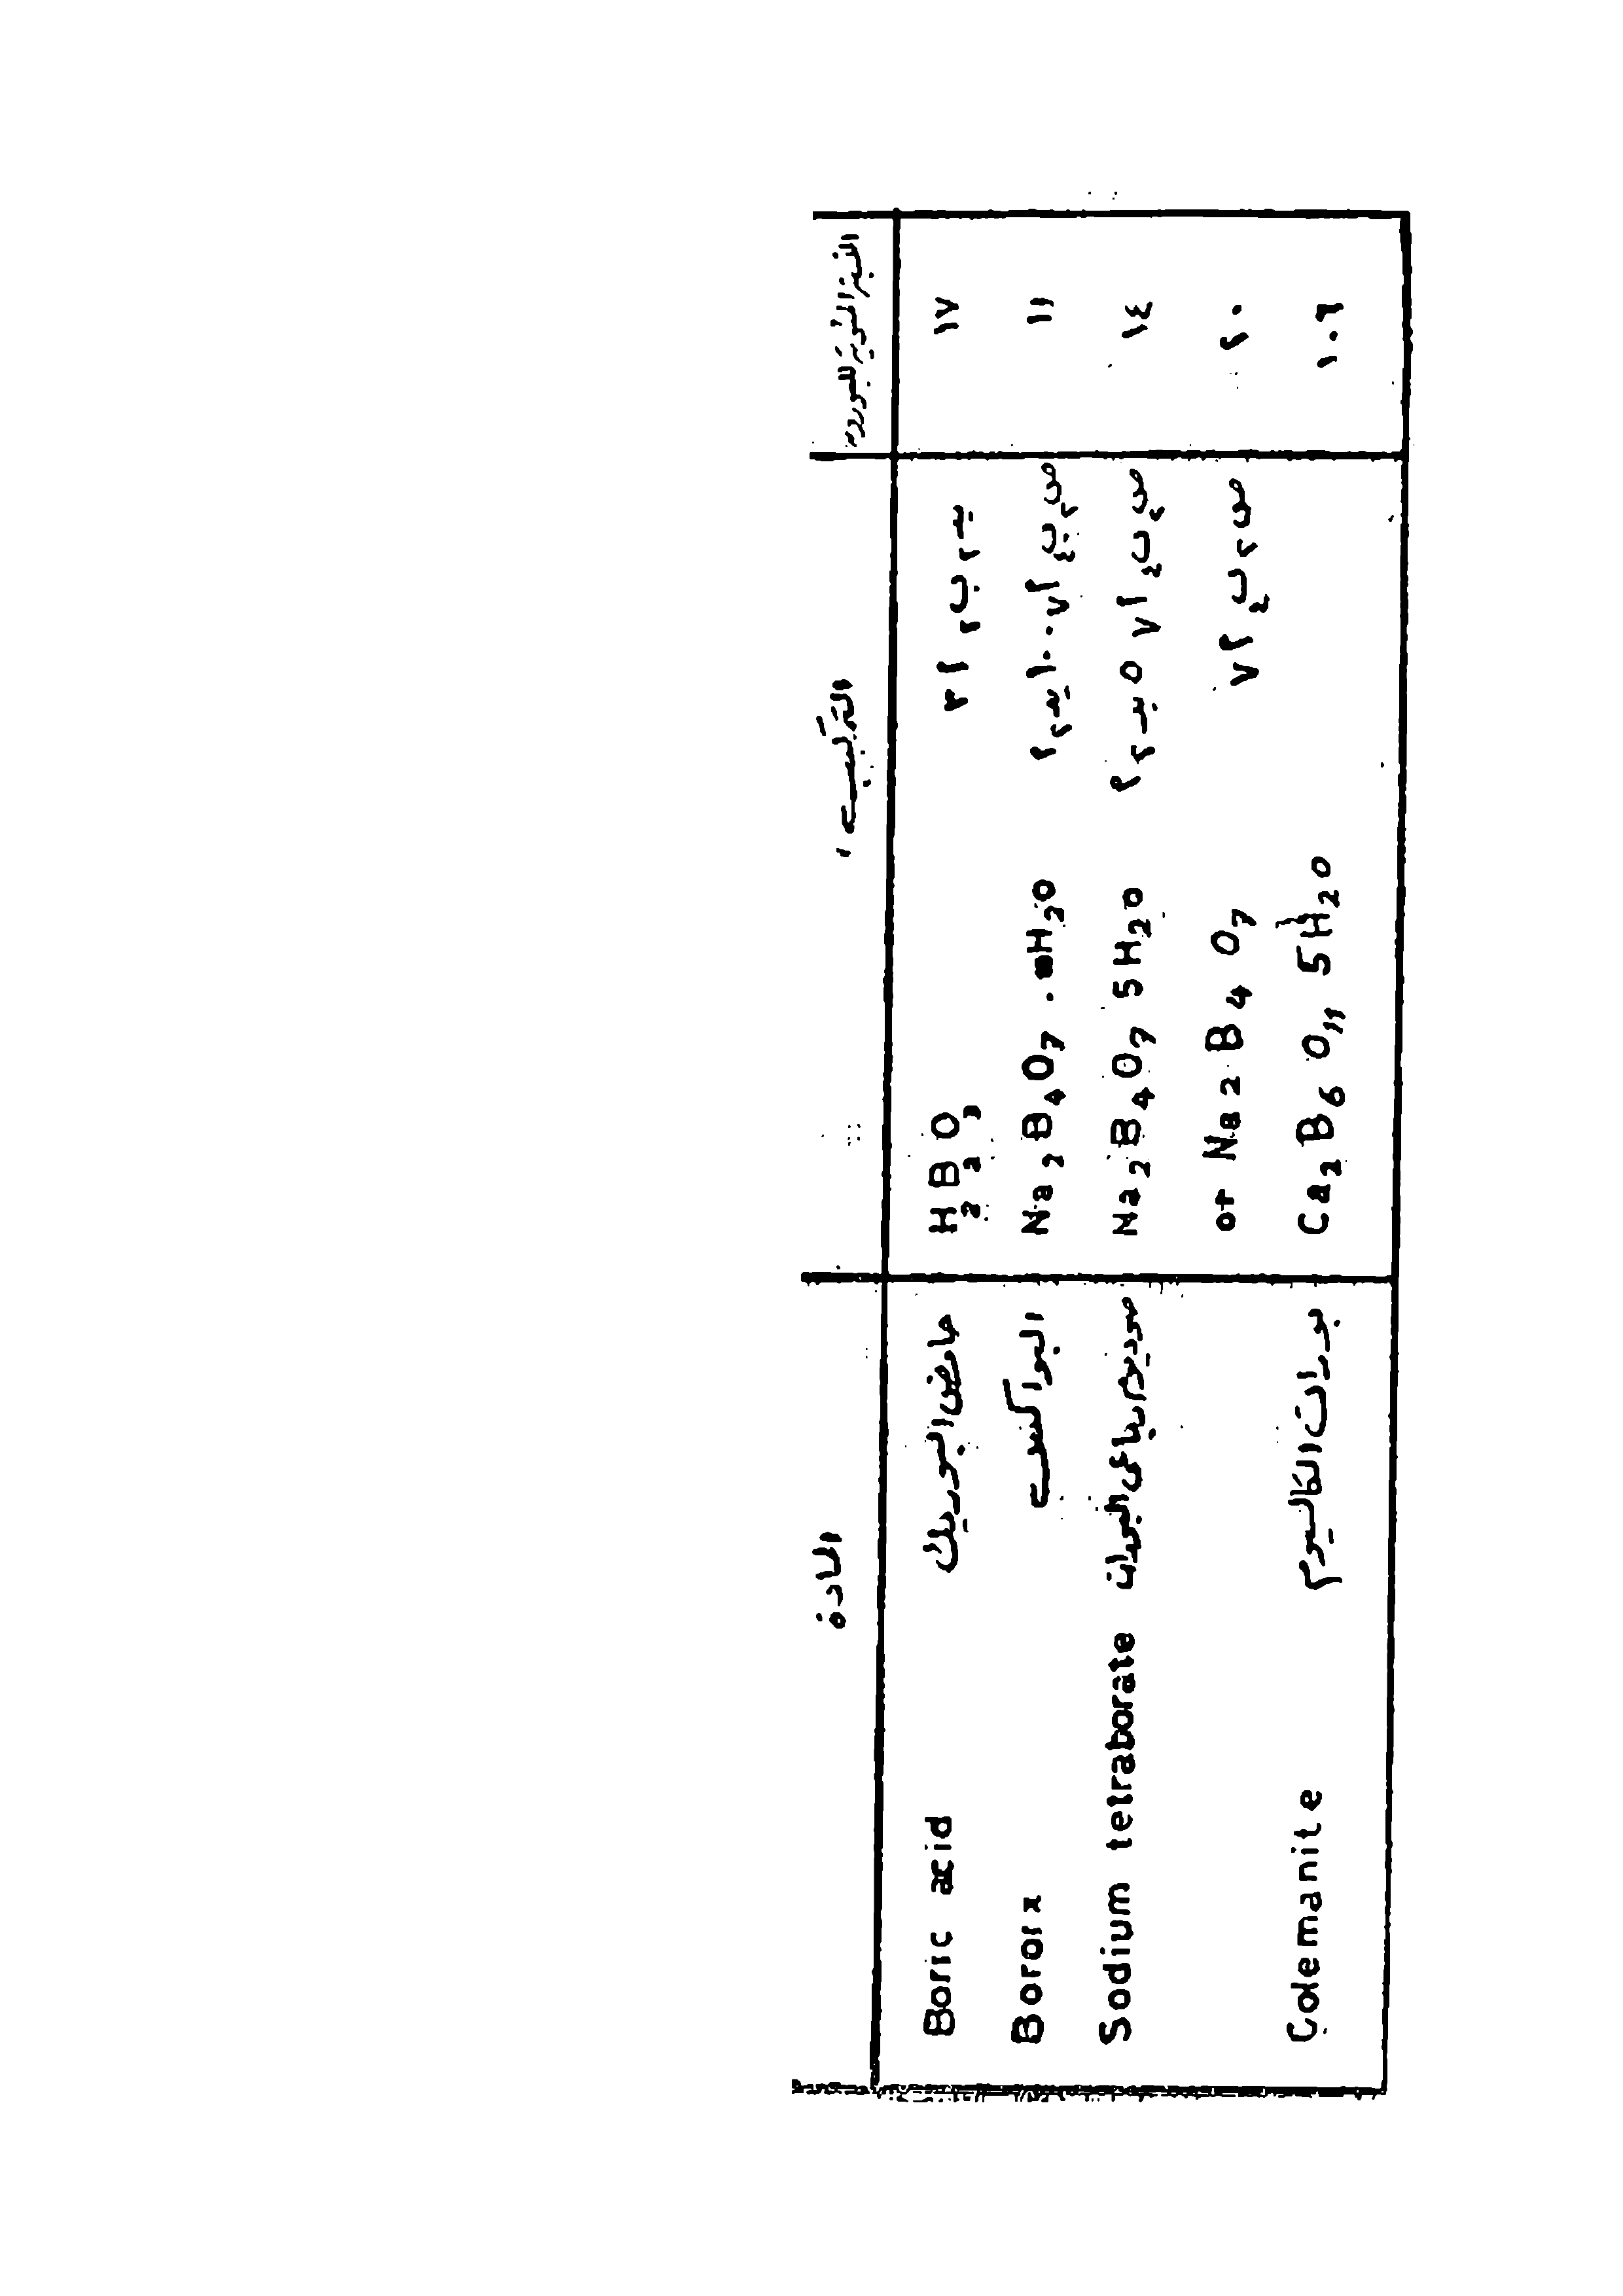 المادة التركيب النسبة المئوية للبورون
Boric acid حامض البوريك H2B2O3 يد٢ ب٢ أ٣ ١٧
Borax البواكس Na2B4O7 . H2O ص٢ ب٤ أ٧ ١٠ يد٢ أ ١١
Sodium tetraborate صوديوم رباعى البورات Na2B4O7 5H2O ص٢ ب٤ أ٧ ٥ يد٢ أ ١٤
or Na2B4O7 ص٢ ب٤ أ٧ ٢٠
Colemanite بورات الكالسيوم Ca2B6O11 5H2O ١٠٦